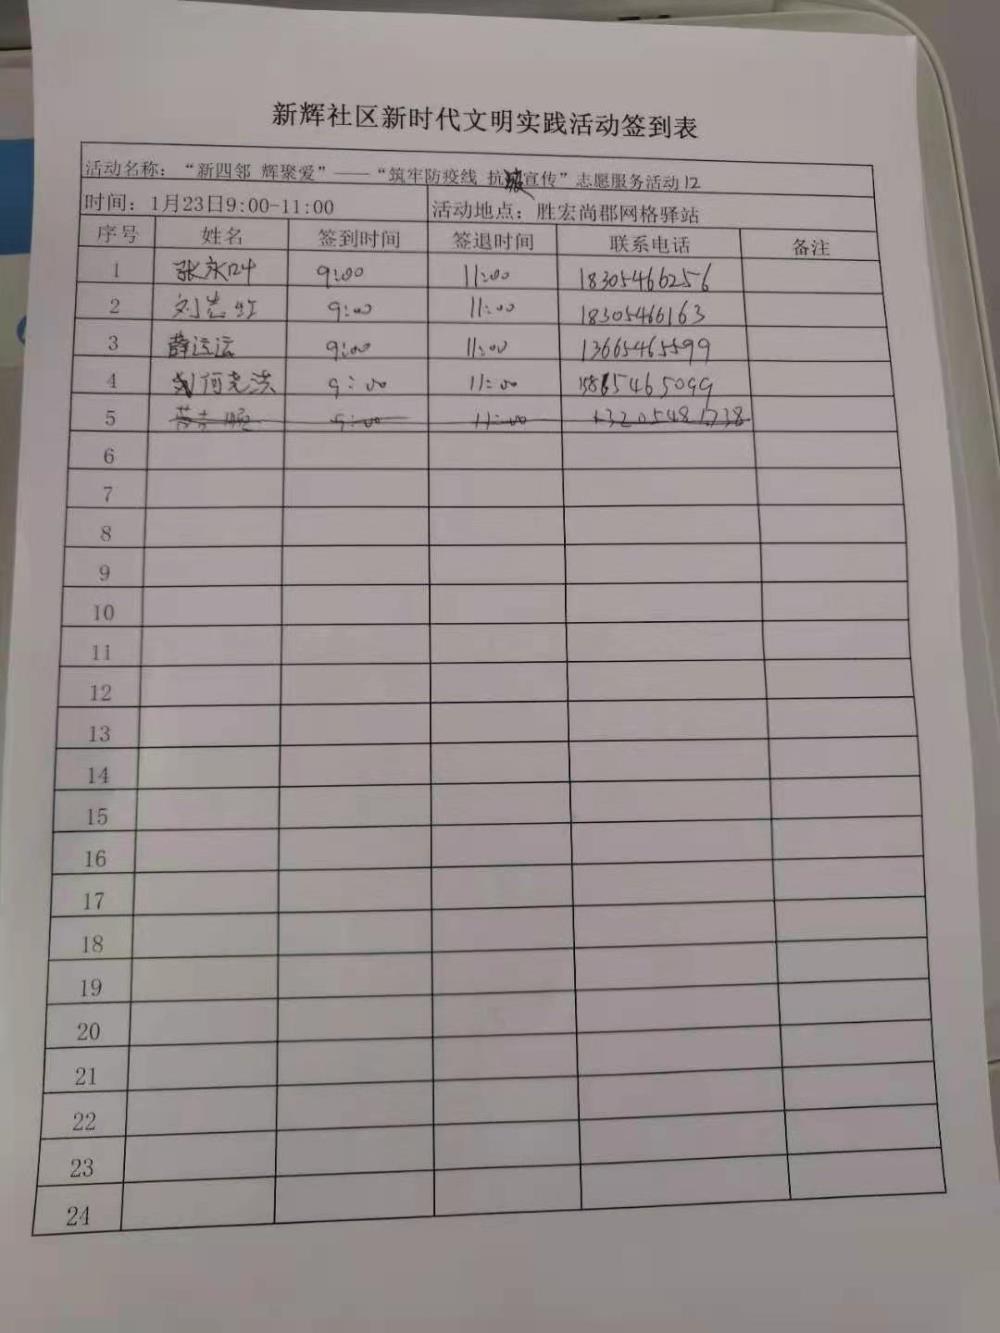 新辉社区新时代文明实践活动签到表
活动名称：“新四邻 辉聚爱”——“筑牢防疫线 抗疫宣传”志愿服务活动12
时间：1月23日9:00-11:00 活动地点：胜宏尚郡网格驿站
序号 姓名 签到时间 签退时间 联系电话 备注
1 张永叶 9:00 11:00 18305466256
2 刘志红 9:00 11:00 18305466163
3 薛运运 9:00 11:00 13665465599
4 9:00 11:00 15865465099
5 9:00 11:00
6
7
8
9
10
11
12
13
14
15
16
17
18
19
20
21
22
23
24